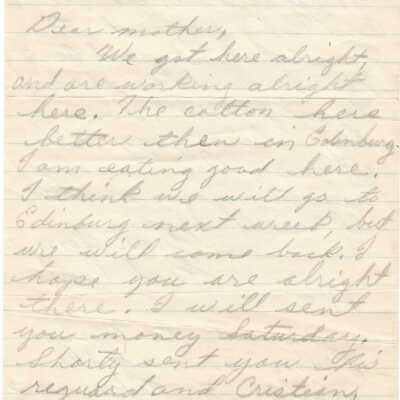 Dear mother,
We got here alright,
and are working alright
here. The cotton here
better then in Edinburg.
I am eating good here.
I think we will go to
Edinburg next week, but
we will come back. I
hope you are alright
there. I will sent
you money Saturday.
Shorty sent you his
reguard and Cristian,